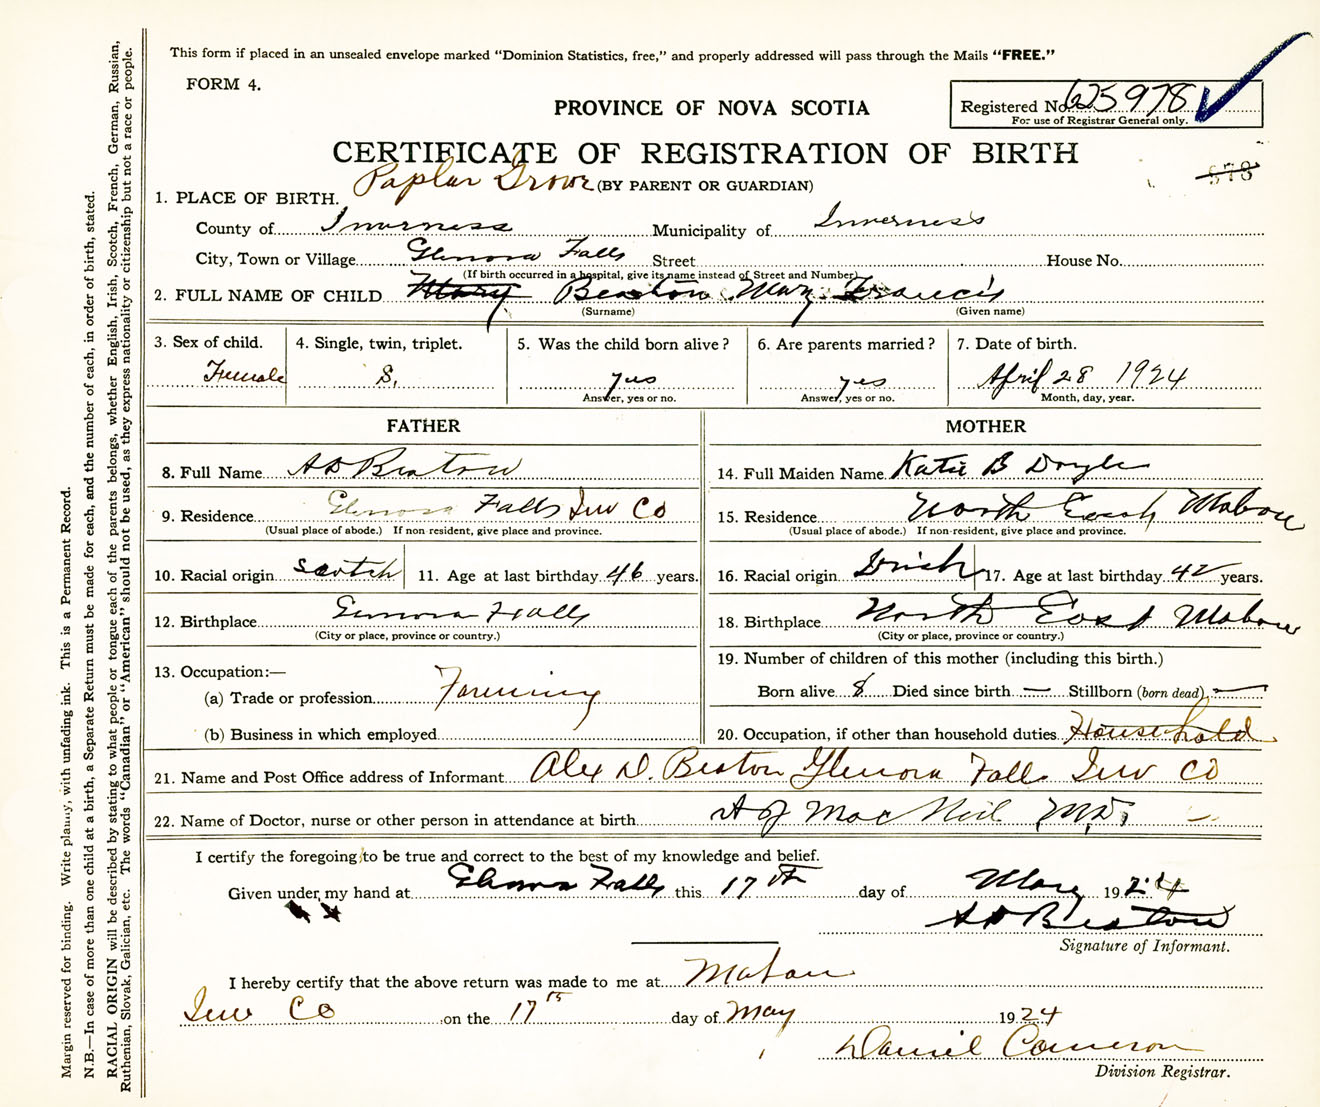 This form if placed in an unsealed envelope marked "Dominion Statistics, free," and properly addressed will pass through the Mails "FREE."
FORM 4.
PROVINCE OF NOVA SCOTIA
Registered No. 625978
For use of Registrar General only.
CERTIFICATE OF REGISTRATION OF BIRTH
578
Paplar Grove (BY PARENT OR GUARDIAN)
1. PLACE OF BIRTH.
County of Inverness Municipality of Inverness
City, Town or Village Glenora Falls Street House No.
(If birth occurred in a hospital, give its name instead of Street and Number)
2. FULL NAME OF CHILD Mary Beaton Mary Francis
(Surname) (Given name)
3. Sex of child. 4. Single, twin, triplet. 5. Was the child born alive? 6. Are parents married? 7. Date of birth.
Female S. yes yes April 28 1924
Answer, yes or no. Answer, yes or no. Month, day, year.
FATHER MOTHER
8. Full Name A D Beaton 14. Full Maiden Name Katie B Doyle
9. Residence Glenora Falls Inv Co 15. Residence North East Mabou
(Usual place of abode.) If non-resident, give place and province. (Usual place of abode.) If non-resident, give place and province.
10. Racial origin Scotch 11. Age at last birthday 46 years. 16. Racial origin Irish 17. Age at last birthday 42 years.
12. Birthplace Glenora Falls 18. Birthplace North East Mabou
(City or place, province or country.) (City or place, province or country.)
13. Occupation:— 19. Number of children of this mother (including this birth.)
(a) Trade or profession Farming Born alive 8 Died since birth — Stillborn (born dead) —
(b) Business in which employed 20. Occupation, if other than household duties Household
21. Name and Post Office address of Informant Alex D. Beaton Glenora Falls Inv Co
22. Name of Doctor, nurse or other person in attendance at birth A J MacNeil M.D.
I certify the foregoing to be true and correct to the best of my knowledge and belief.
Given under my hand at Glenora Falls this 17th day of May 1924
A D Beaton
Signature of Informant.
I hereby certify that the above return was made to me at Mabou
Inv Co on the 17th day of May 1924
Daniel Cameron
Division Registrar.
Margin reserved for binding. Write plainly, with unfading ink. This is a Permanent Record.
N.B.—In case of more than one child at a birth, a Separate Return must be made for each, and the number of each, in order of birth, stated.
RACIAL ORIGIN will be described by stating to what people or tongue each of the parents belongs, whether English, Irish, Scotch, French, German, Russian,
Ruthenian, Slovak, Galician, etc. The words "Canadian" or "American" should not be used, as they express nationality or citizenship but not a race or people.